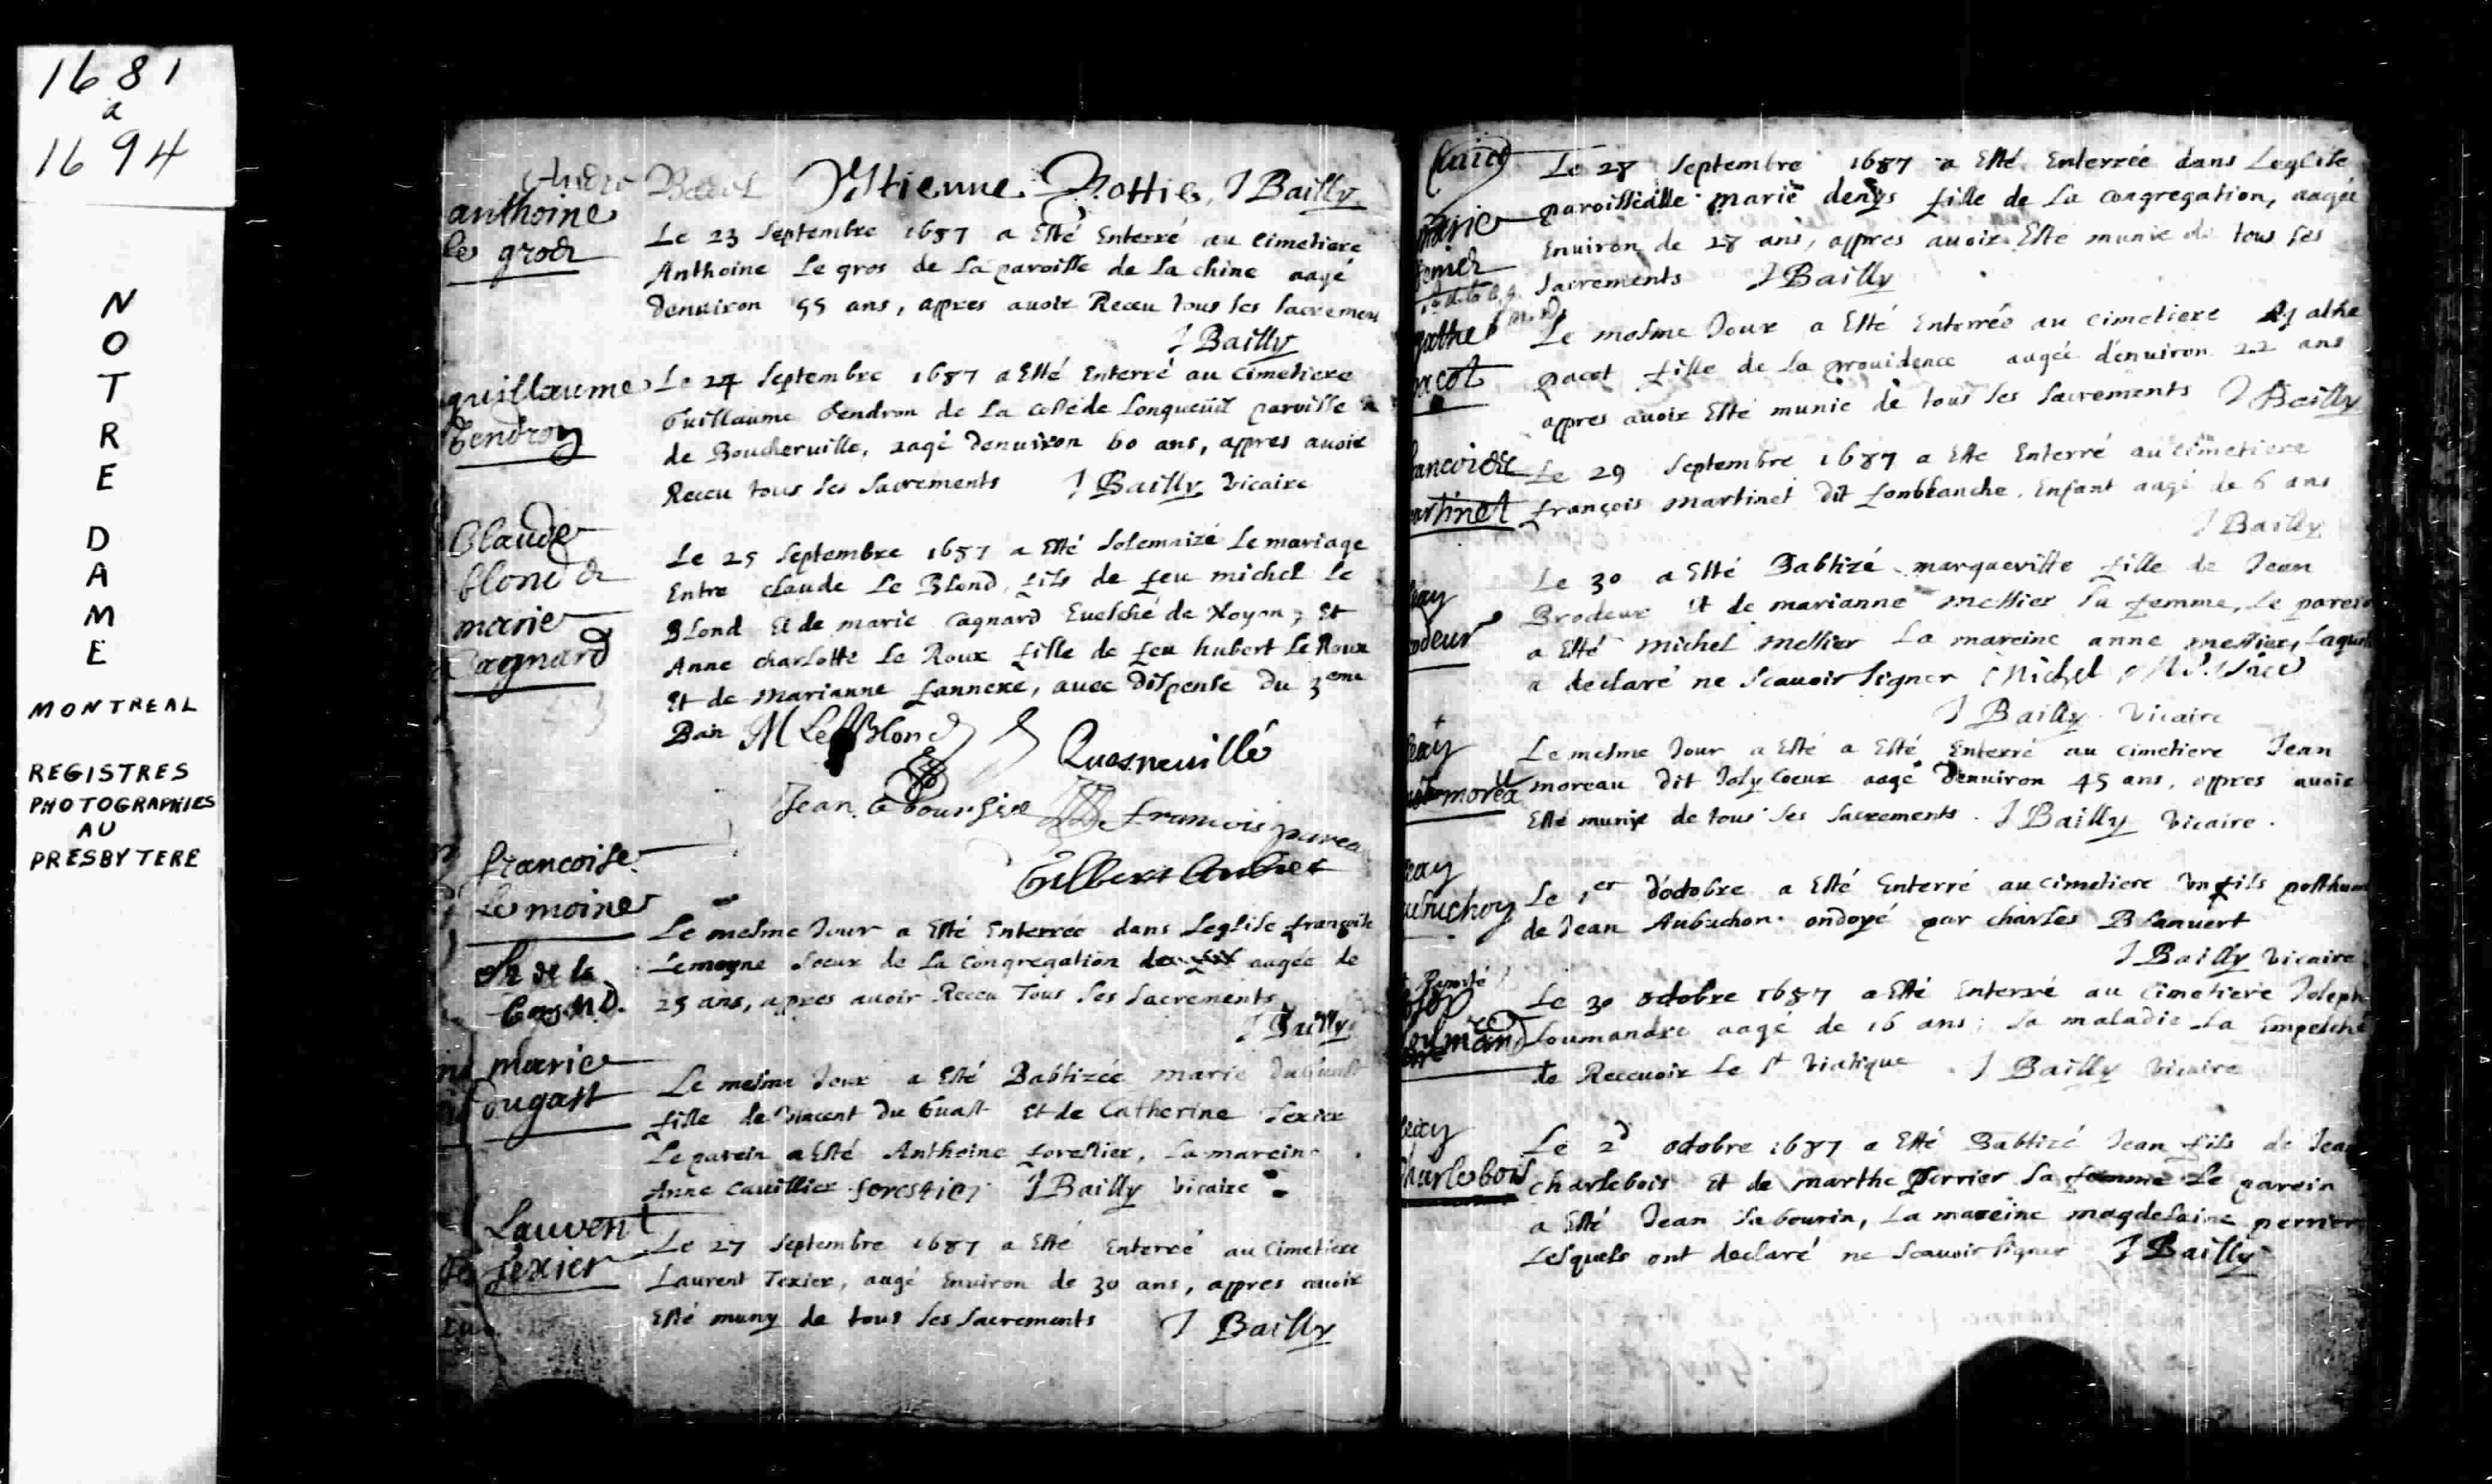 1681
a
1694
NOTRE
DAME
MONTREAL
REGISTRES
PHOTOGRAPHIES
AU
PRESBYTERE
André J Bailly
anthoine
le gros
Le 23 Septembre 1687 a Esté Enterré au Cimetiere
Anthoine Le gros de La paroisse de La chine aagé
denuiron 55 ans, appres auoir Receu tous ses sacremens
J Bailly
guillaume
Gendron
Le 24 Septembre 1687 a Esté Enterré au Cimetiere
Guillaume Gendron de La coste de Longueüil paroisse
de Boucheruille, aagé denuiron 60 ans, appres auoir
Receu tous ses Sacrements J Bailly vicaire
Claude
blond &
marie
Cagnard
Le 25 Septembre 1687 a Esté Solemnizé Le mariage
Entre claude Le Blond fils de feu michel Le
Blond Et de marie Cagnard Euesché de Noyon; Et
Anne charlotte Le Roux fille de feu hubert Le Roux
Et de marianne fannexe, auec dispense du 3eme
Ban M LeBlond Quesneuillé
Jean Le francois
Gilbert
francoise
Le moine
Sr de la
Cong. N.D.
Le mesme Jour a Esté Enterrée dans Leglise françoise
Lemoyne Soeur de La Congregation aagée de
25 ans, apres auoir Receu Tous ses Sacrements
J Bailly
marie
dugast
Le mesme Jour a Esté Babtizée marie
fille de Vincent du Guast Et de Catherine Texier
Le parein a Esté Anthoine forestier, La mareine
Anne Cauillier forestier J Bailly vicaire
Lauvent
texier
Le 27 Septembre 1687 a Esté Enterré au Cimetiere
Laurent Texier, aagé Enuiron de 30 ans, appres auoir
Esté muny de tous ses Sacrements J Bailly
Marie
Le 28 Septembre 1687 a Esté Enterrée dans Leglise
paroissialle marie denys fille de La Congregation, aagée
Enuiron de 28 ans, appres auoir Esté munie de tous ses
Sacrements J Bailly
Le mesme Jour a Esté Enterrée au cimetiere Agathe
pacot fille de La prouidence aagée d'enuiron 22 ans
appres auoir Esté munie de tous ses Sacrements J Bailly
Le 29 Septembre 1687 a Esté Enterré au cimetiere
françois martinet dit fonblanche, Enfant aagé de 6 ans
J Bailly
Le 30 a Esté Babtizé fille de Jean
Brodeur Et de marianne messier Sa femme, Le parein
a Esté michel messier La mareine anne messier,
a declaré ne Scauoir Signer Michel
J Bailly Vicaire
Le mesme Jour a Esté a Esté Enterré au cimetiere Jean
moreau dit Joly Coeur aagé denuiron 45 ans, appres auoir
Esté munye de tous ses Sacrements. J Bailly vicaire.
Le 1er d'octobre a Esté Enterré au cimetiere Vn fils
de Jean Aubuchon. ondoyé par charles Blanuert
J Bailly vicaire
Le 30 octobre 1687 a Esté Enterré au Cimetiere Joseph
Loumandre aagé de 16 ans; La maladie La Empesché
de Receuoir Le St Viatique. J Bailly vicaire
charlebois
Le 2d octobre 1687 a Esté Babtizé Jean fils de Jean
charlebois Et de marthe perrier Sa femme Le parein
a Esté Jean Sabourin, La mareine magdelaine perrier
Lesquels ont declaré ne Scauoir Signer J Bailly